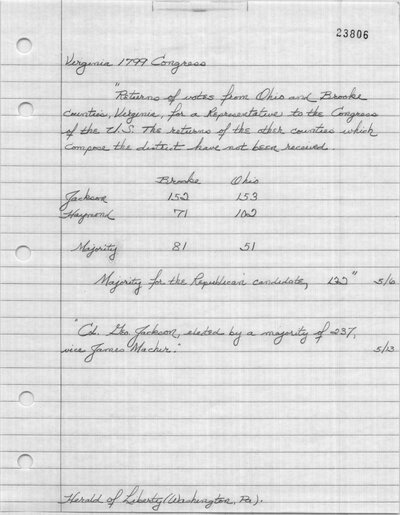 23806
Virginia 1799 Congress
"Returns of votes from Ohio and Brooke
counties, Virginia, for a Representative to the Congress
of the U.S. The returns of the other counties which
compose the district have not been received
Brooke Ohio
Jackson 152 153
Haymond 71 102
Majority 81 51
Majority for the Republican candidate, 132" 5/6
"Col. Geo. Jackson, elected by a majority of 237,
vice James Macher." 5/13
Herald of Liberty (Washington, Pa).